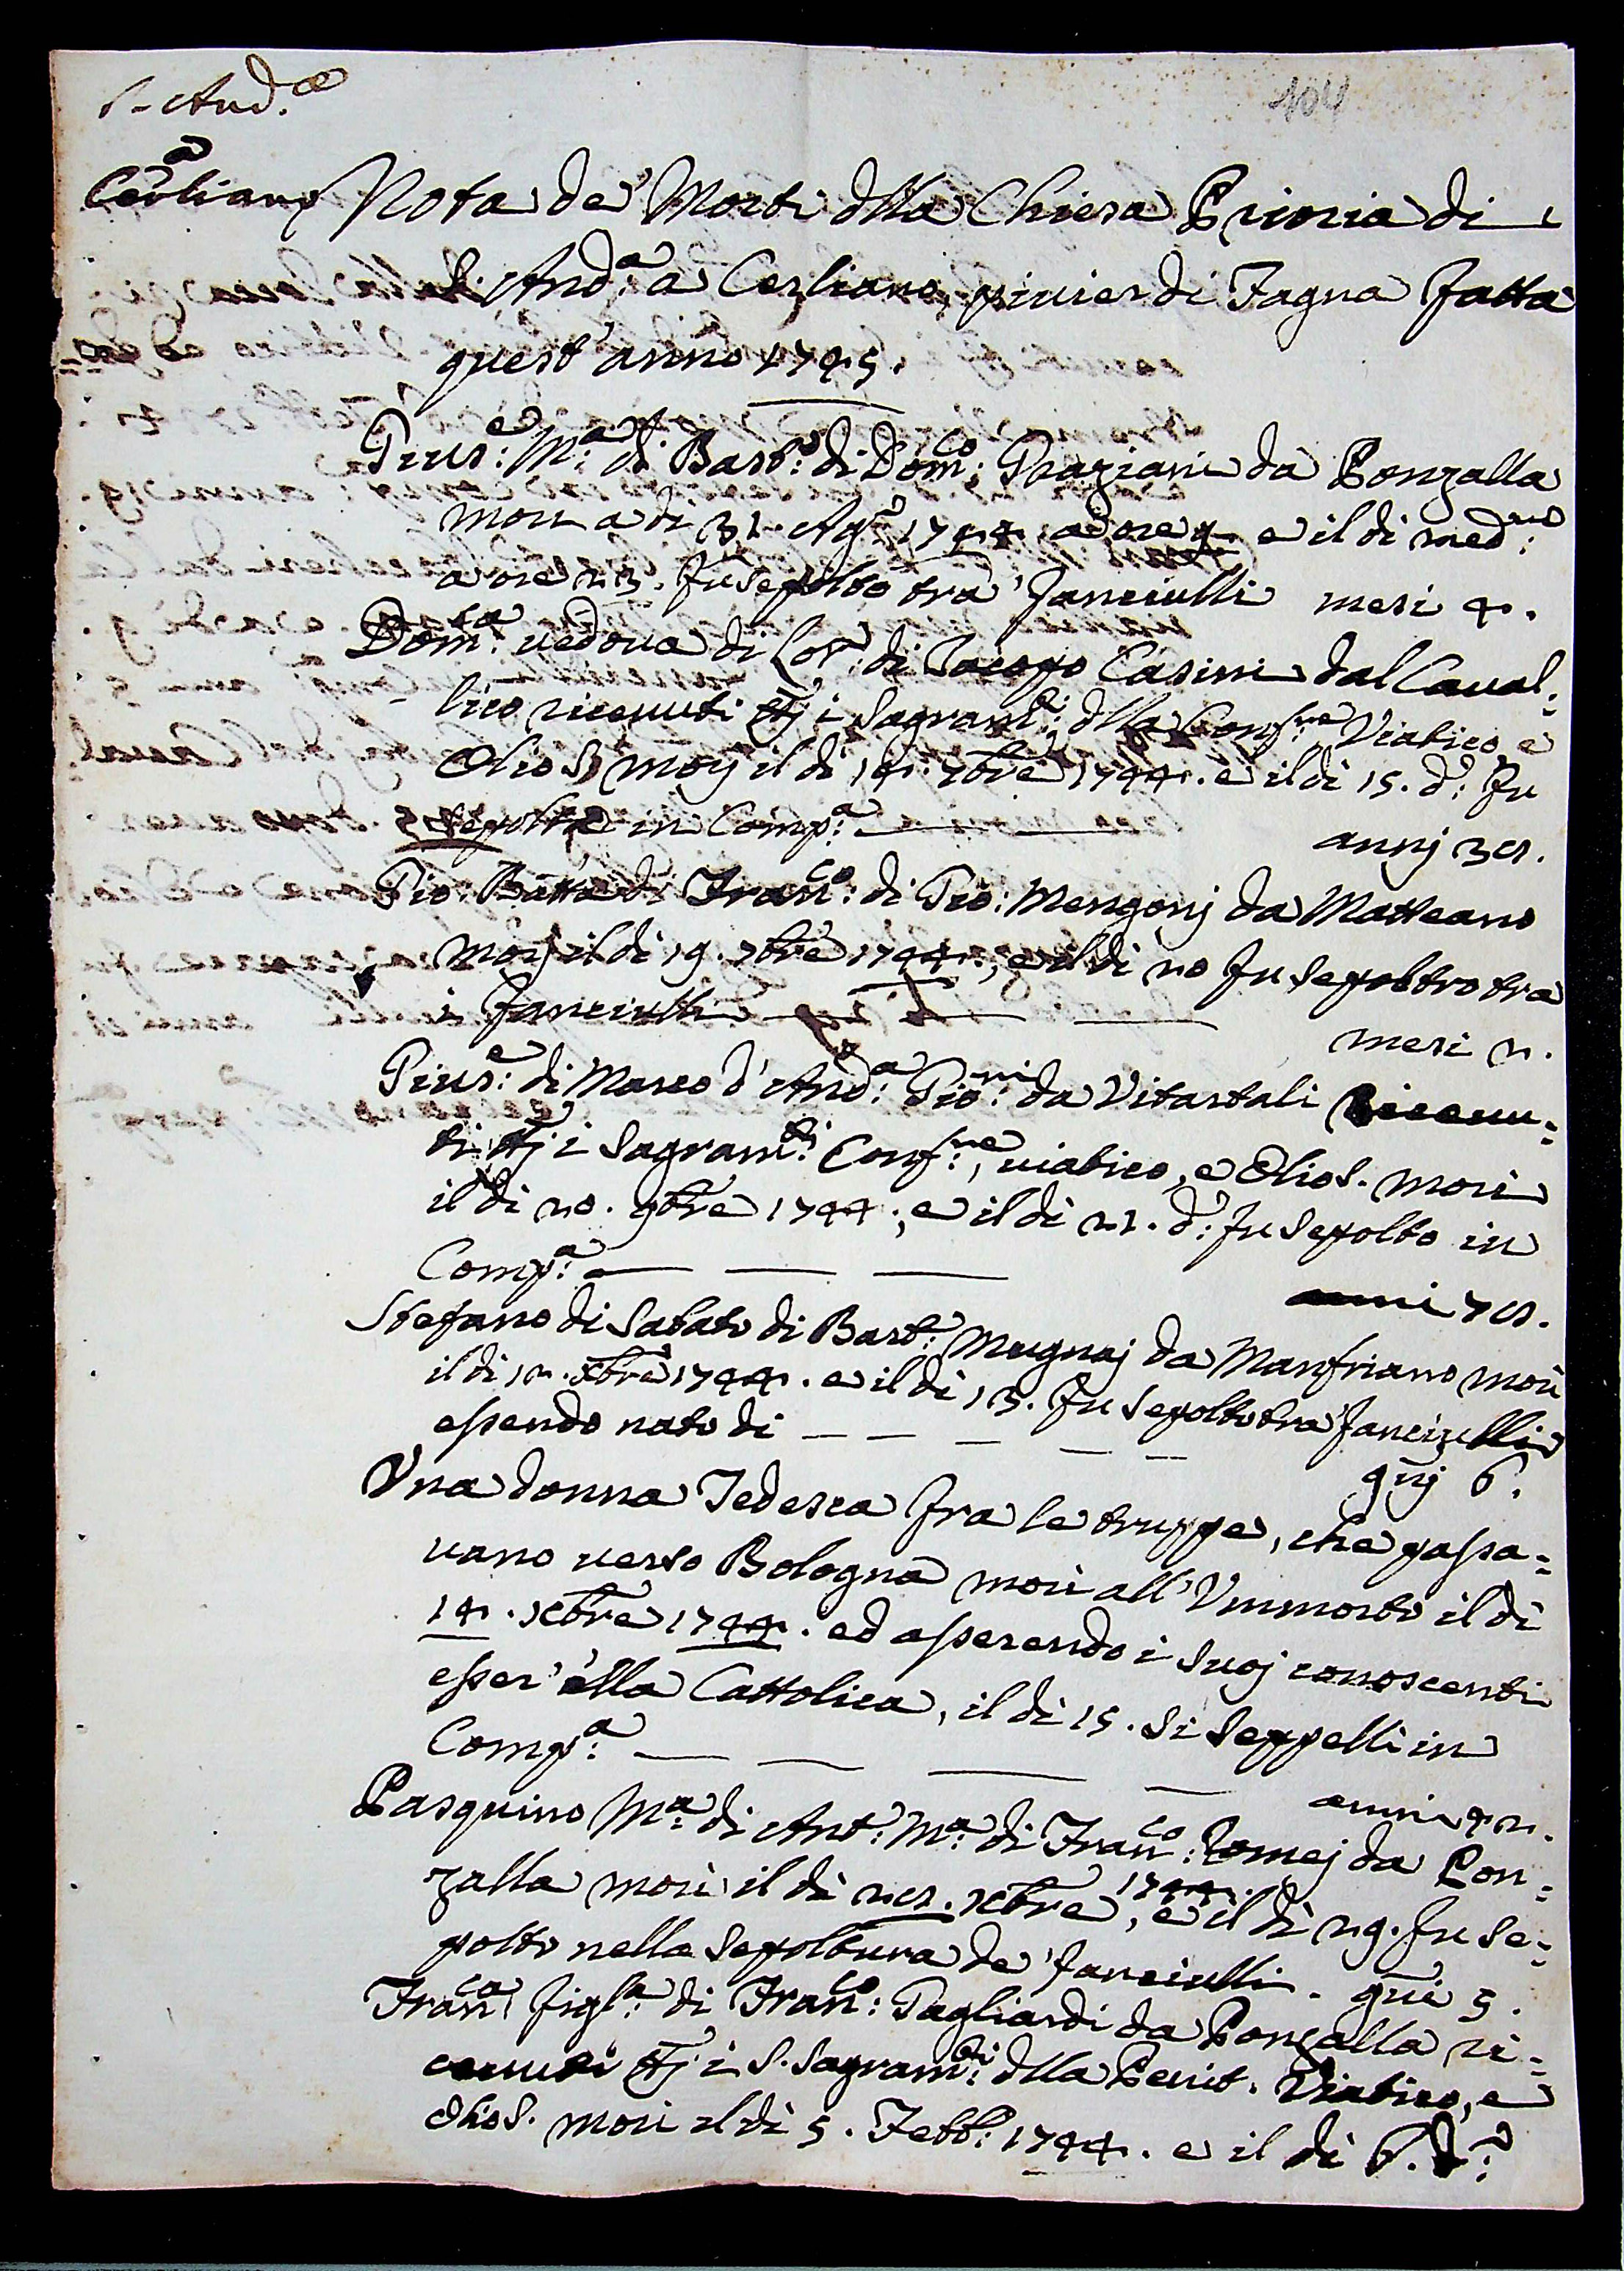 S. And.a
104
a Cerliano
Nota de' Morti dlla Chiesa Prioria di
S. And.a a Cerliano, pivier di Fagna fatta
quest' anno 1745.
Gius.e M.a di Bast.o di Dom.co Graziani da Ronzalla
morì a di 31. Ag.o 1744. ad ore 4. e il di med.mo
a ore 23. fu sepolto tra' fanciulli mesi 4.
Dom.ca vedova di Lor.o di Iacopo Casini dal Caval=
lico ricevuti tt.j i Sagram.ti dlla Conf.ne Viatico, e
Olio S. morj il di 14. 7bre 1744. e il di 15. d.o fu
sepolta in Comp.a annj 38.
Gio: Batta di Fran.co di Gio: Mengonj da Matteano
morj il di 19. 7bre 1744., e il di 20 fu sepoltro tra
i fanciulli mesi 2.
Gius.e di Marco d'And.a Gio.ni da Vitartali Ricevu=
ti tt.j i Sagram.ti Conf.ne, viatico, e Olio S. morì
il di 20. 9bre 1744., e il di 21. d.o fu sepolto in
Comp.a anni 78.
Stefano di Sabato di Bart.o Mugnaj da Manfriano morì
il di 12. Xbre 1744. e il di 13. fu sepolto tra' fanciulli
essendo nato di gnj 6.
Una donna Tedesca fra le truppe, che passa=
vano verso Bologna morì all' Vnmorto il di
14. Xbre 1744. ed asserendo i suoj conoscenti
esser' ella Cattolica, il di 15. si seppellì in
Comp.a anni 42.
Pasquino M.a di Ant.o M.a di Fran.co Romej da Ron=
zalla morì il di 28. Xbre 1744., e il di 29. fu se=
polto nella sepoltura de' fanciulli. gni 5.
Fran.ca figl.a di Fran.co Gagliardi da Ronzalla ri=
cevuti tt.j i S. Sagram.ti dlla Penit. Viatico, e
Olio S. morì il di 5. Febb.o 1744. e il di 6. d.o